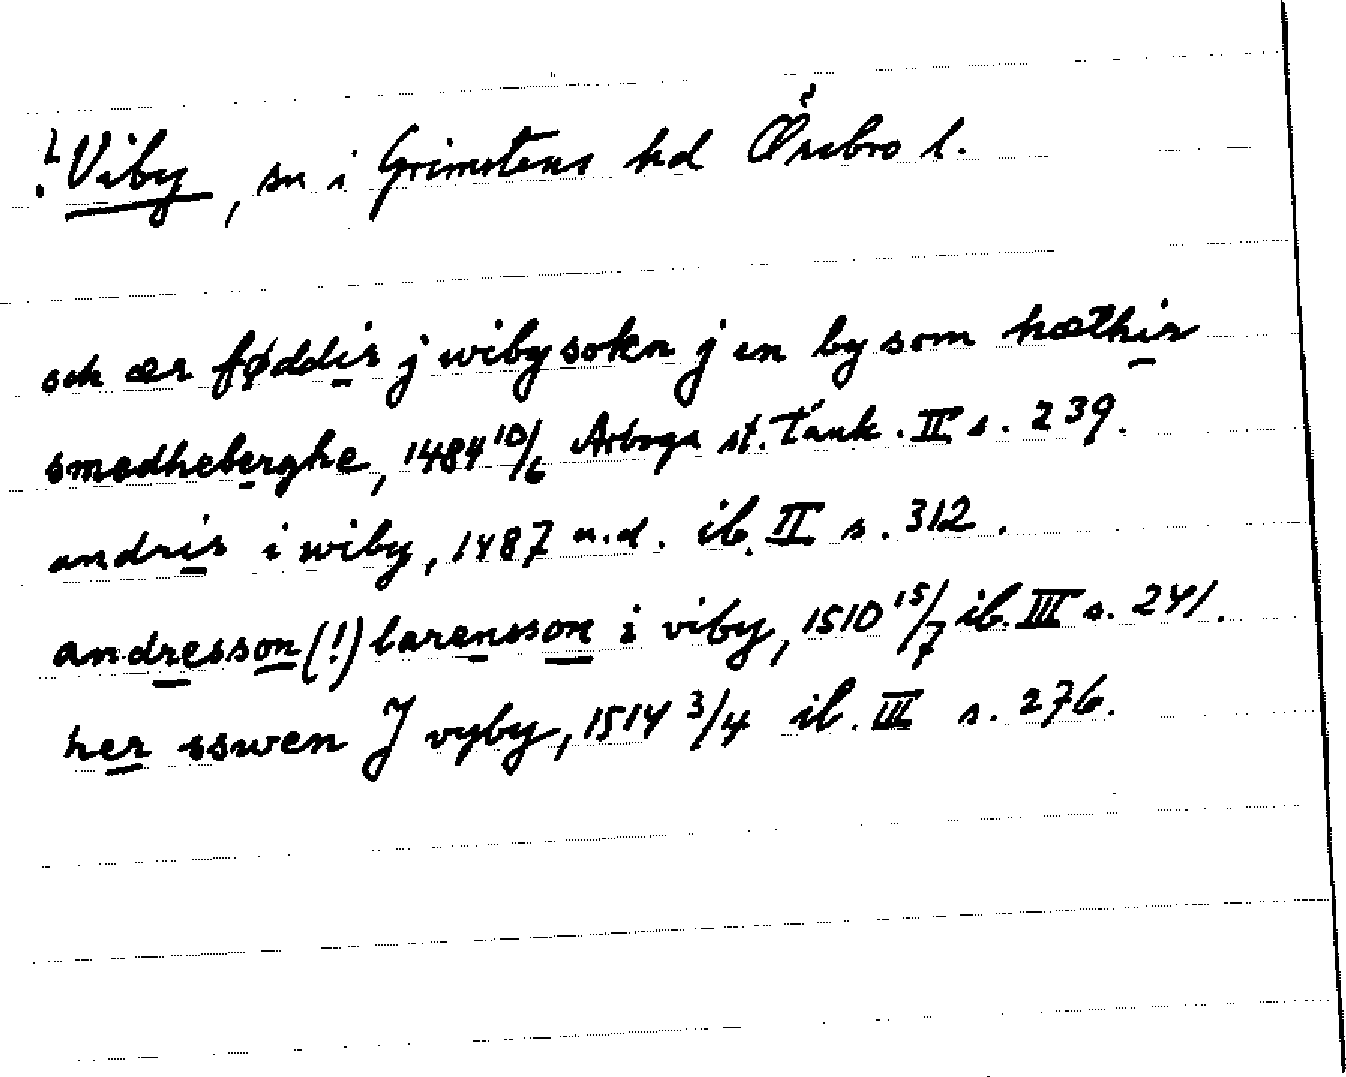 !Viby, sn i Grimstens hd Örebro l.
och ær føddir j wiby sokn j en by som hæthir
smedheberghe, 1484 10/6 Arboga st. Tänk. II s. 239.
andris i wiby, 1487 u.d. ib. II s. 312.
andresson (!) larensson i viby, 1510 15/7 ib. III s. 241.
her sswen J vyby, 1514 3/4 ib. III s. 276.